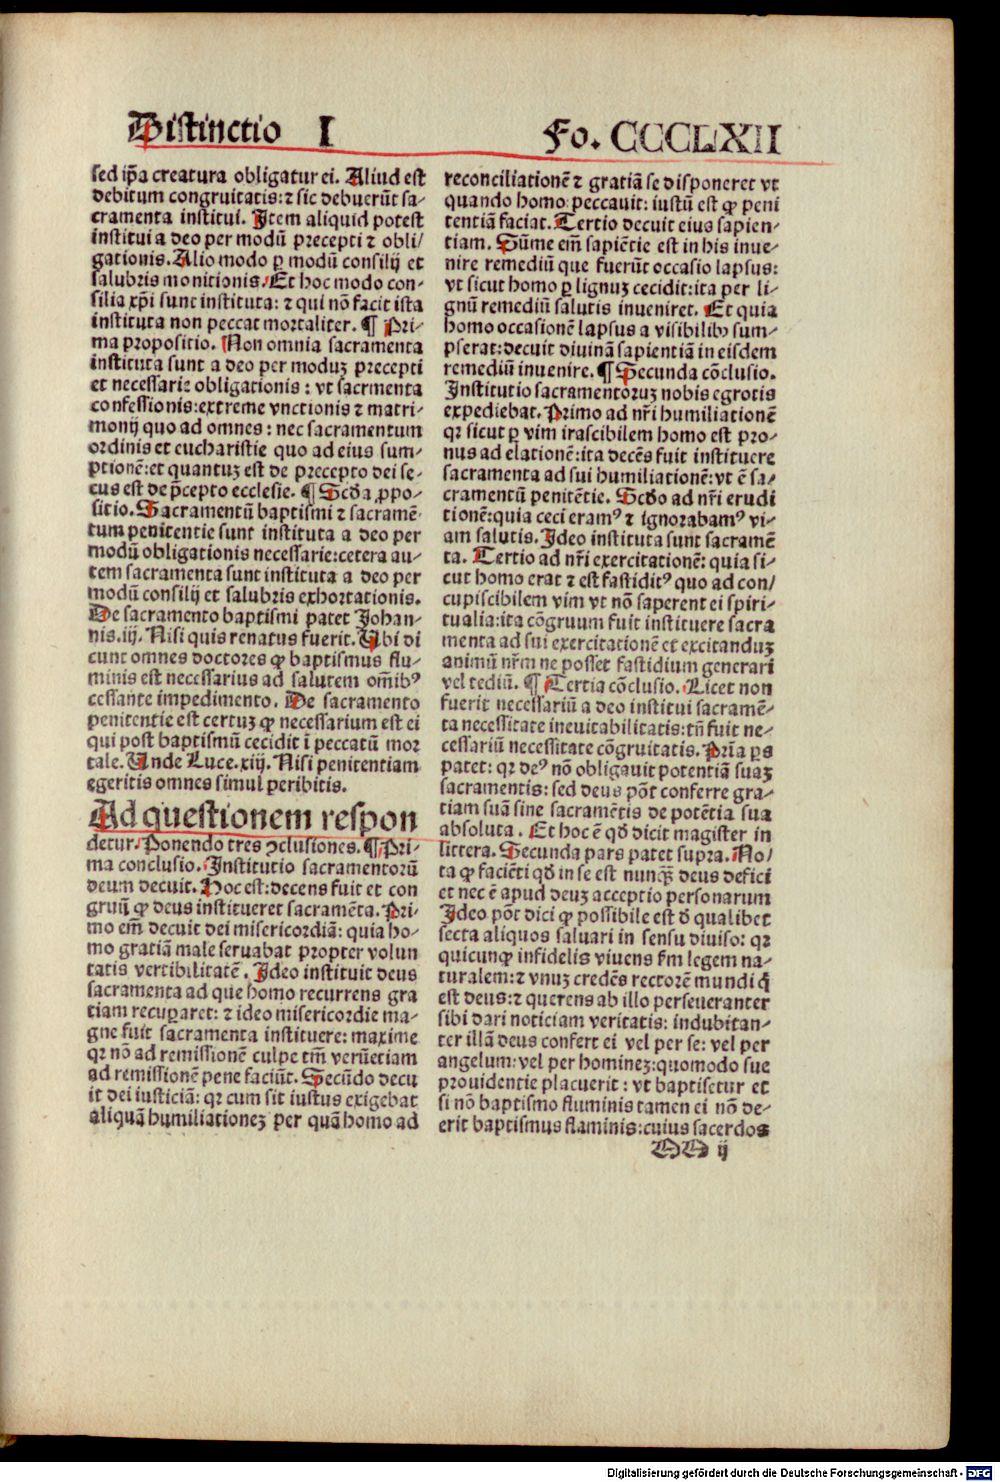 Distinctio I
Fo. CCCCLXII
sed ip̃a creatura obligatur ei. Aliud est
debitum congruitatis: ⁊ sic debuerūt sa-
cramenta institui. Item aliquid potest
institui a deo per modū precepti ⁊ obli/
gationis. Alio modo ꝑ modū consilij et
salubris monitionis. Et hoc modo con-
silia xp̃i sunt instituta: ⁊ qui nō facit ista
instituta non peccat mortaliter. ¶ Pri-
ma propositio. Non omnia sacramenta
instituta sunt a deo per moduꝫ precepti
et necessarie obligationis: vt sacrmenta
confessionis: extreme vnctionis ⁊ matri-
monij quo ad omnes: nec sacramentum
ordinis et eucharistie quo ad eius sum-
ptionē: et quantuꝫ est de precepto dei se-
cus est de p̄cepto ecclesie. ¶ Scd̓a ꝓpo-
sitio. Sacramentū baptismi ⁊ sacramē-
tum penitentie sunt instituta a deo per
modū obligationis necessarie: cetera au-
tem sacramenta sunt instituta a deo per
modū consilij et salubris exhortationis.
De sacramento baptismi patet Johan-
nis. iij. Nisi quis renatus fuerit. Vbi di
cunt omnes doctores ꝙ baptismus flu-
minis est necessarius ad salutem om̄ibꝰ
cessante impedimento. De sacramento
penitentie est certuꝫ ꝙ necessarium est ei
qui post baptismū cecidit ī peccatū mor
tale. Vnde Luce. xiij. Nisi penitentiam
egeritis omnes simul peribitis.
Ad questionem respon
detur. Ponendo tres ꝯclusiones. ¶ Pri-
ma conclusio. Institutio sacramentorū
deum decuit. Hoc est: decens fuit et con
gruū ꝙ deus institueret sacramēta. Pri-
mo em̄ decuit dei misericordiā: quia ho-
mo gratiā male seruabat propter volun
tatis vertibilitatē. Ideo instituit deus
sacramenta ad que homo recurrens gra
tiam recuꝑaret: ⁊ ideo misericordie ma-
gne fuit sacramenta instituere: maxime
qꝛ nō ad remissionē culpe tm̄ verūetiam
ad remissionē pene faciūt. Secūdo decu
it dei iusticiā: qꝛ cum sit iustus exigebat
aliquā humiliationeꝫ per quā homo ad
reconciliationē ⁊ gratiā se disponeret vt
quando homo peccauit: iustū est ꝙ peni
tentiā faciat. Tertio decuit eius sapien-
tiam. Sūme em̄ sapiētie est in his inue-
nire remediū que fuerūt occasio lapsus:
vt sicut homo ꝑ lignuꝫ cecidit: ita per li-
gnū remediū salutis inueniret. Et quia
homo occasionē lapsus a visibilibꝰ sum-
pserat: decuit diuinā sapientiā in eisdem
remediū inuenire. ¶ Secunda cōclusio.
Institutio sacramentoruꝫ nobis egrotis
expediebat. Primo ad nr̄i humiliationē
qꝛ sicut ꝑ vim irascibilem homo est pro-
nus ad elationē: ita decēs fuit instituere
sacramenta ad sui humiliationē: vt ē sa-
cramentū penitētie. Scd̓o ad nr̄i erudi
tionē: quia ceci eramꝰ ⁊ ignorabamꝰ vi-
am salutis. Ideo instituta sunt sacramē
ta. Tertio ad nr̄i exercitationē: quia si-
cut homo erat ⁊ est fastiditꝰ quo ad con/
cupiscibilem vim vt nō saperent ei spiri-
tualia: ita cōgruum fuit instituere sacra
menta ad sui exercitationē et excitanduꝫ
animū nr̄m ne posset fastidium generari
vel tediū. ¶ Tertia cōclusio. Licet non
fuerit necessariū a deo institui sacramē-
ta necessitate ineuitabilitatis: tn̄ fuit ne-
cessariū necessitate cōgruitatis. Prīa ꝑs
patet: qꝛ deꝰ nō obligauit potentiā suaꝫ
sacramentis: sed deus pōt conferre gra-
tiam suā sine sacramētis de potētia sua
absoluta. Et hoc ē qd̓ dicit magister in
littera. Secunda pars patet supra. No/
ta ꝙ faciēti qd̓ in se est nunqꝫ deus defici
et nec ē apud deuꝫ acceptio personarum
Ideo pōt dici ꝙ possibile est d̓ qualibet
secta aliquos saluari in sensu diuiso: qꝛ
quicunqꝫ infidelis viuens fm legem na-
turalem: ⁊ vnuꝫ credēs rectorē mundi q̄
est deus: ⁊ querens ab illo perseueranter
sibi dari noticiam veritatis: indubitan-
ter illā deus confert ei vel per se: vel per
angelum: vel per homineꝫ: quomodo sue
prouidentie placuerit: vt baptisetur et
si nō baptismo fluminis tamen ei nō de-
erit baptismus flaminis: cuius sacerdos
OO ij
Digitalisierung gefördert durch die Deutsche Forschungsgemeinschaft - DFG